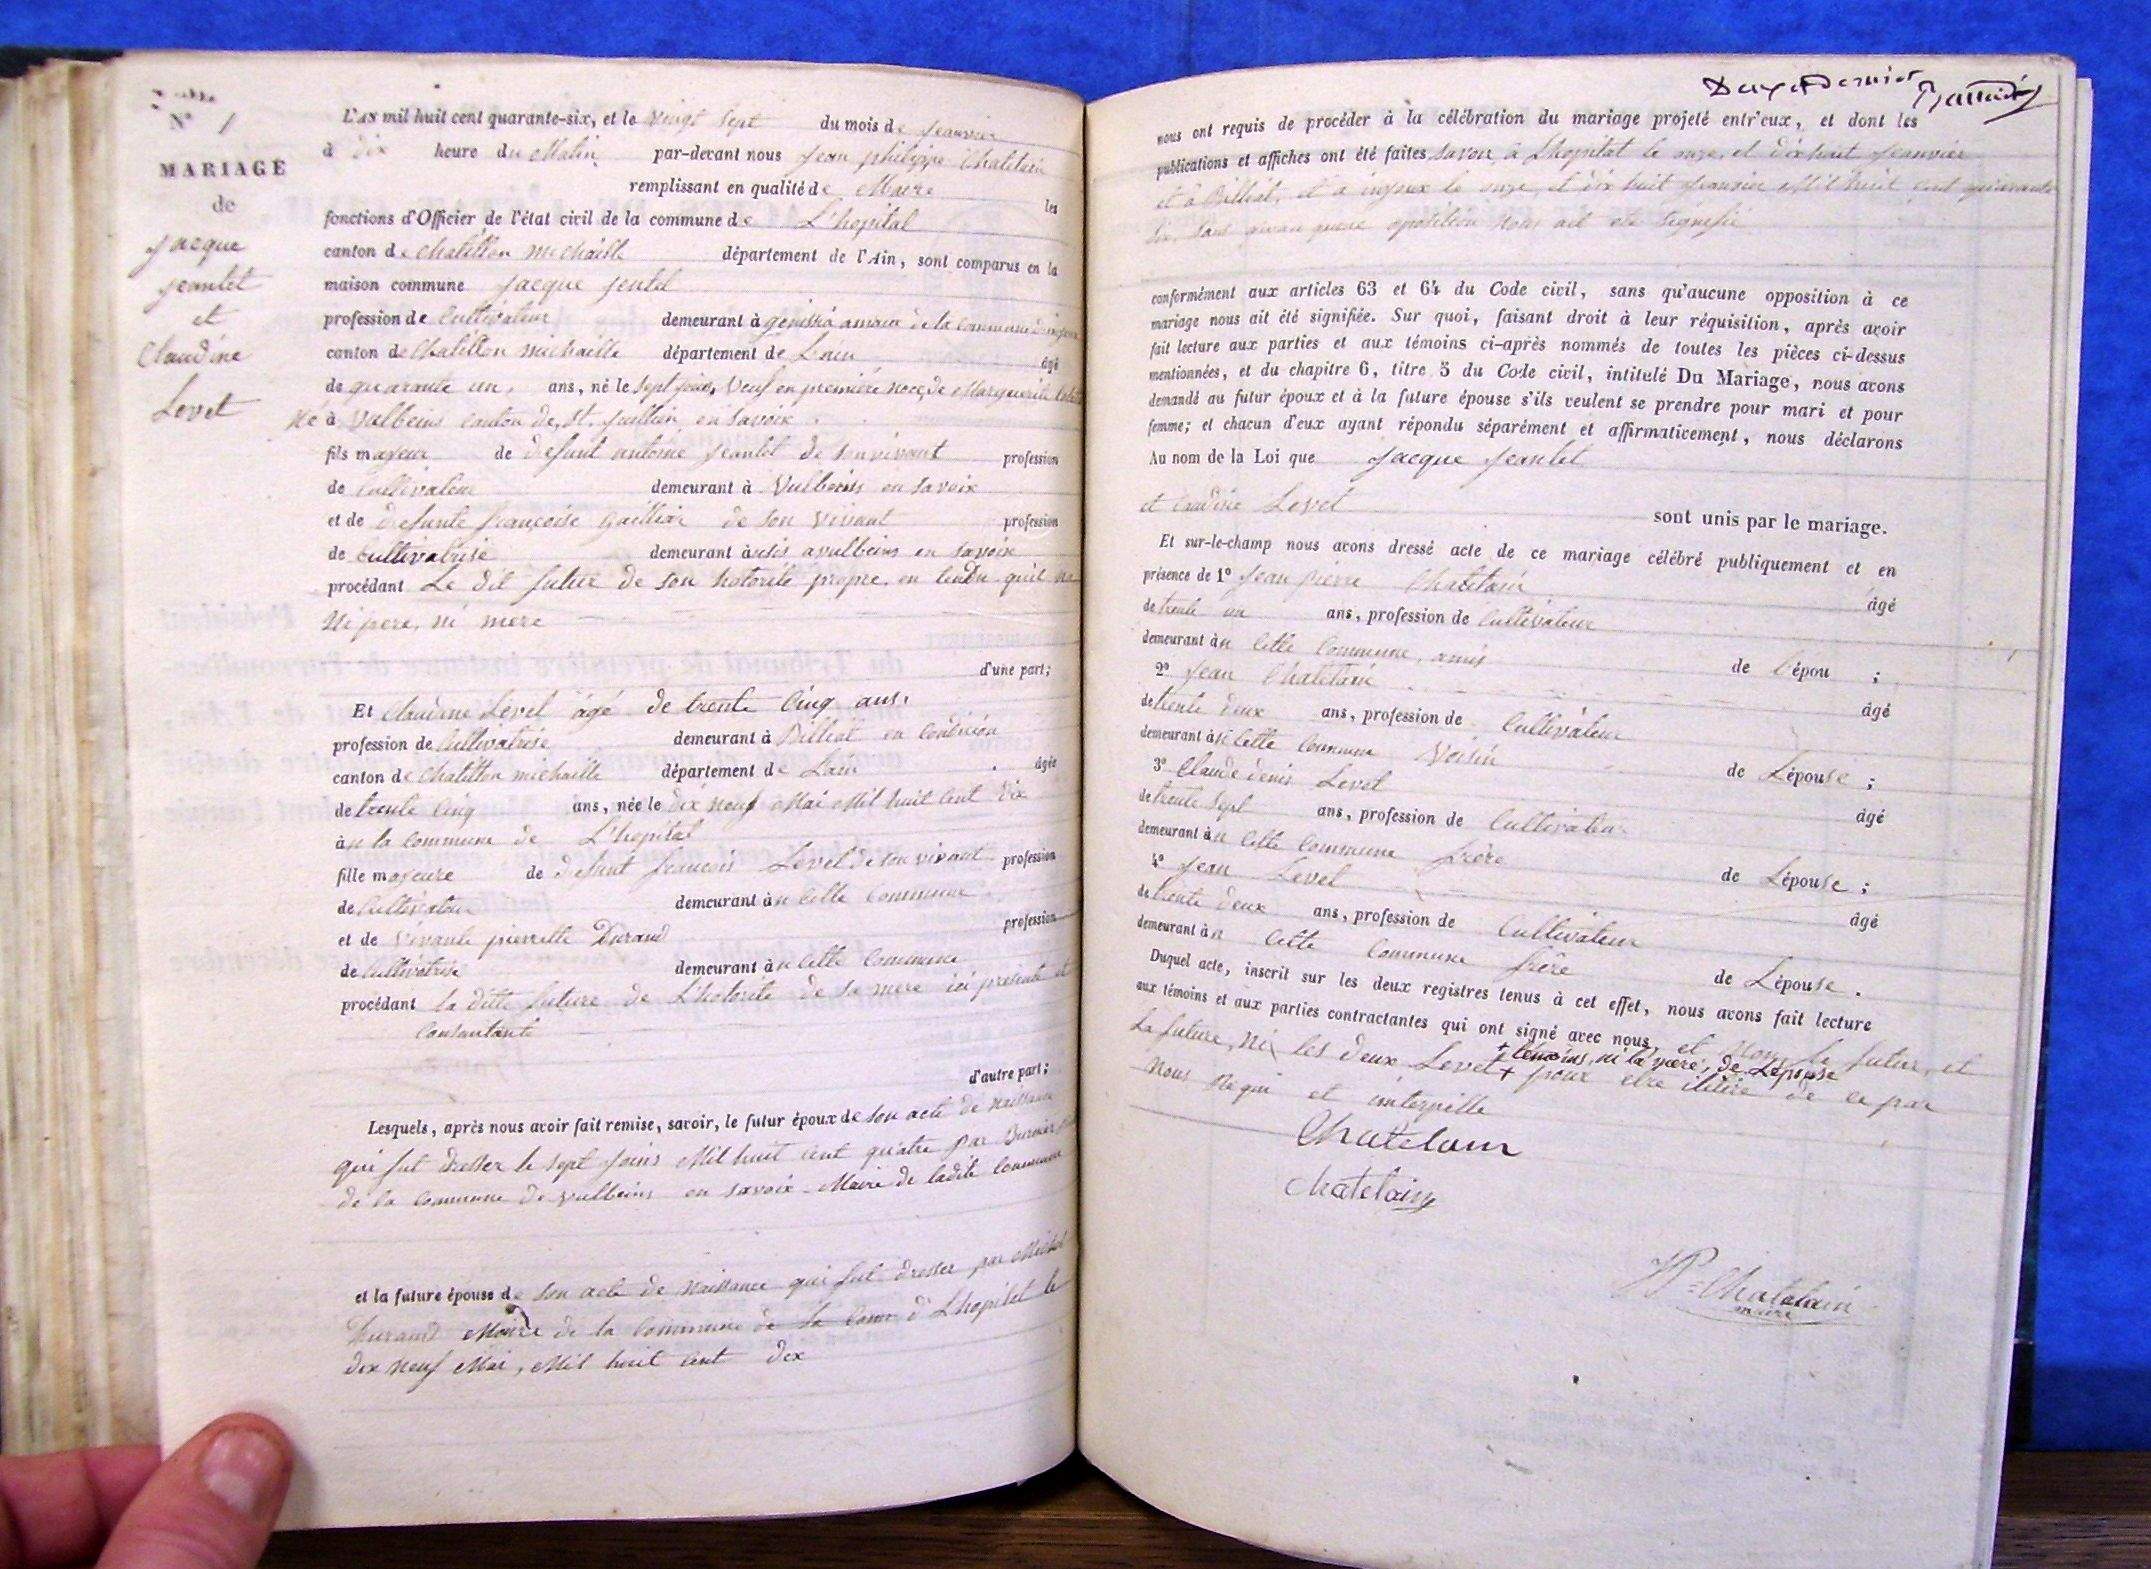 N° 1
MARIAGE
de
Jacque
Jeantet
et
Claudine
Levet
L'AN mil huit cent quarante-six, et le Vingt Sept du mois de Janvier
à dix heure du Matin par-devant nous Jean philippe Chatelain
remplissant en qualité de Maire les
fonctions d'Officier de l'état civil de la commune de L'hopital
canton de Chatillon michaille département de l'Ain, sont comparus en la
maison commune Jacque Jentet
profession de Cultivateur demeurant à de la Commune
canton de Chatillon michaille département de Lain âgé
de quarante un, ans, né le Sept Joins, Veuf en première noce de Marguerite
Né à Valbeins Canton de St. Jullien en Savoix
fils majeur de defunt antoine Jeantet de Sonvivant profession
de Cultivateur demeurant à Vulbeins en Savoix
et de defunte françoise de Son vivant profession
de Cultivatrise demeurant à avulbeins en Savoix
procédant Le dit futur de son hotorité propre en tendu quil na
Ni pere, ni mere
d'une part;
Et Claudine Levet agé de trente Cinq ans.
profession de Cultivatrise demeurant à Billiat en
canton de Chatillon michaille département de Lain âgée
de trente Cinq ans, née le dix neuf Mai Mil huit Cent dix
àn la Commune de L'hopital
fille majeure de defunt françois Levet de son vivant profession
de Cultivateur demeurant àn Cette Commune
et de Vivante pierrette Durand profession
de Cultivatrise demeurant àn Cette Commune
procédant la ditte future de L'hotorité de Sa mere ici presente et
Consentante
d'autre part;
Lesquels, après nous avoir fait remise, savoir, le futur époux de Son acte de naissance
qui fut dresser le sept Joins Mil huit Cent quatre par
de la Commune de vulbeins en Savoix Maire de ladite Commune
et la future épouse de Son acte de naissance qui fut dresser par Michel
Durand Maire de la Commune de la Com d'Lhopital le
dix neuf Mai, Mil huit Cent dix
nous ont requis de procéder à la célébration du mariage projeté entr'eux, et dont les
publications et affiches ont été faites Savoir à Lhopital le onze, et dixhuit Janvier
et à Billiat, et a injoux le onze, et dix huit Janvier Mil huit Cent quarante
Six, Sans oposition Nous ait eté Signifié
conformément aux articles 63 et 64 du Code civil, sans qu'aucune opposition à ce
mariage nous ait été signifiée. Sur quoi, faisant droit à leur réquisition, après avoir
fait lecture aux parties et aux témoins ci-après nommés de toutes les pièces ci-dessus
mentionnées, et du chapitre 6, titre 5 du Code civil, intitulé Du Mariage, nous avons
demandé au futur époux et à la future épouse s'ils veulent se prendre pour mari et pour
femme; et chacun d'eux ayant répondu séparément et affirmativement, nous déclarons
Au nom de la Loi que Jacque Jeantet
et Claudine Levet sont unis par le mariage.
Et sur-le-champ nous avons dressé acte de ce mariage célébré publiquement et en
présence de 1° Jean pierre Chatelain âgé
de trente un ans, profession de Cultivateur
demeurant àn Cette Commune, amis de l'épou ;
2° Jean Chatelain âgé
de trente deux ans, profession de Cultivateur
demeurant àn Cette Commune Voisin de Lépouse ;
3° Claude denis Levet âgé
de trente Sept ans, profession de Cultivateur
demeurant àn Cette Commune frère de Lépouse ;
4° Jean Levet âgé
de trente deux ans, profession de Cultivateur
demeurant àn Cette Commune frère de Lépouse .
Duquel acte, inscrit sur les deux registres tenus à cet effet, nous avons fait lecture
aux témoins et aux parties contractantes qui ont signé avec nous, et Non le futur, et
+ témoins, ni la mère, de Lépouse
La future, Ni les deux Levet + pour etre de ce par
Nous Requi et interpille
Chatelain
Chatelain
JP = Chatelain
maire